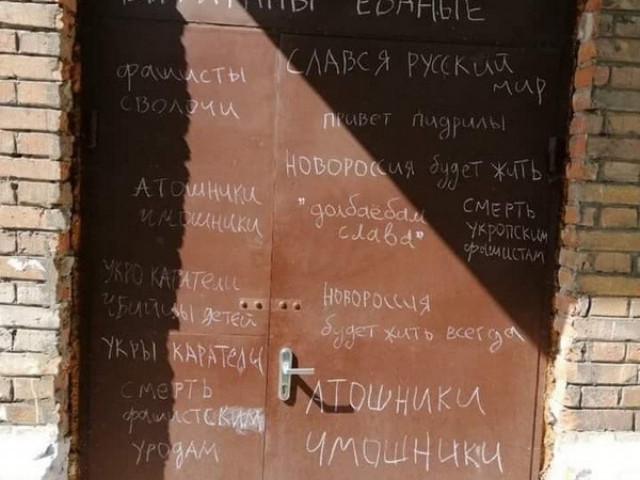 ЕБАНЫЕ
фашисты
сволочи
СЛАВСЯ РУССКИЙ
мир
привет пидрилы
НОВОРОССИЯ будет жить
АТОШНИКИ
чмошники
"долбаёбам
слава"
СМЕРТЬ
укропским
фашистам
УКРО КАРАТЕЛИ
убийцы детей
НОВОРОССИЯ
будет жить всегда
УКРЫ КАРАТЕЛИ
смерть
фашистским
уродам
АТОШНИКИ
ЧМОШНИКИ